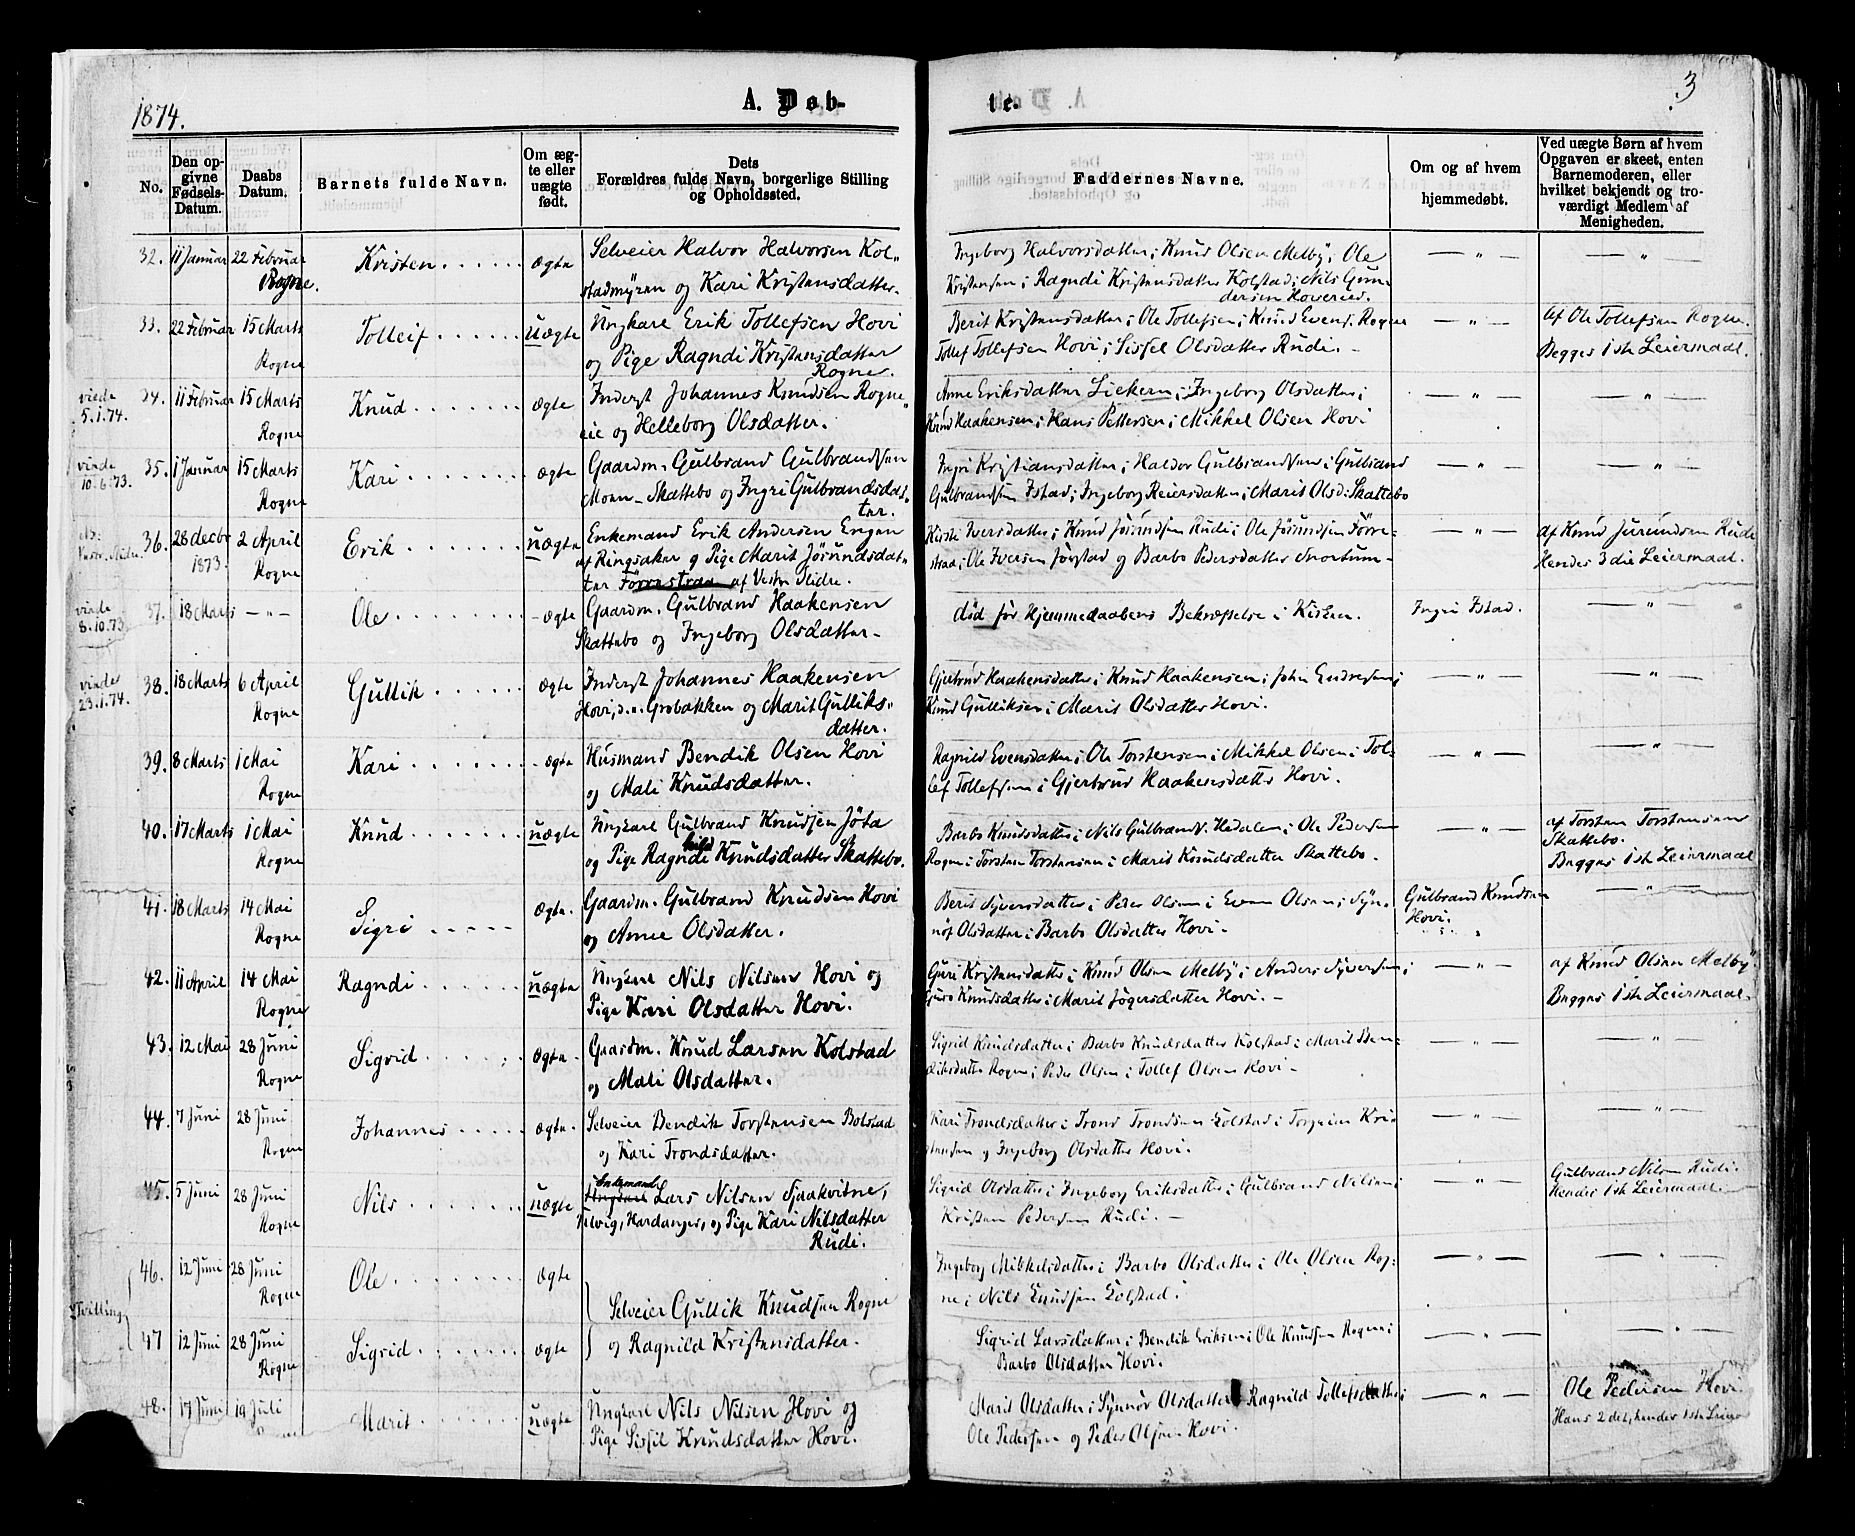 1874.
A. Døb-
te.
3
No.
Den op-
givne
Fødsels-
Datum.
Daabs
Datum.
Barnets fulde Navn.
Om æg-
te eller
uægte
født.
Dets
Forældres fulde Navn, borgerlige Stilling
og Opholdssted.
Faddernes Navne.
Om og af hvem
hjemmedøbt.
Ved uægte Børn af hvem
Opgaven er skeet, enten
Barnemoderen, eller
hvilket bekjendt og tro-
værdigt Medlem af
Menigheden.
32. 11 Januar 22 Februar Kristen ægte Selveier Halvor Halvorsen Kol-
Rogne. stadmyren og Kari Kristensdatter.
Ingeborg Halvorsdatter; Knud Olsen Melby; Ole
Kristensen; Ragndi Kristensdatter Kolstad; Nils Gun-
dersen Hoveried.
— " — — " —
33. 22 Februar 15 Marts Tolleif uægte Ungkarl Erik Tollefsen Hovi
Rogne og Pige Ragndi Kristensdatter
Rogne.
Berit Kristensdatter; Ole Tollefsen; Knud Evens. Rogne
Tollef Tollefsen Hovi; Sissel Olsdatter Rudi. —
— " — Af Ole Tollefsen Rogne.
Begges 1ste Leiermaal.
viede
5.1.74.
34. 11 Februar 15 Marts Knud ægte Inderst Johannes Knudsen Rogne-
Rogne eie og Helleborg Olsdatter.
Anne Eriksdatter Liekern; Ingeborg Olsdatter;
Knud Haakensen; Hans Pettersen; Mikkel Olsen Hovi
— " — — " —
viede
10.6.73.
35. 1 Januar 15 Marts Kari ægte Gaardm. Gulbrand Gulbrandsen
Rogne Moen-Skattebo og Ingri Gulbrandsdat-
ter.
Ingri Kristiansdatter; Haldor Gulbrandsen; Gulbrand
Gulbrandsen Istad; Ingeborg Reiersdatter; Marit Olsd: Skattebo
— " — — " —
Vestre Slidre.
36. 28 decbr 2 April Erik uægte Enkemand Erik Andersen Engen
1873. Rogne af Ringsaker og Pige Marit Jørundsdat-
ter Førrestraa af Vestre Slidre.
Kirsti Iversdatter; Knud Jørundsen Rudi; Ole Jørundsen Førre-
straa; Ole Iversen Jørstad og Barbo Pedersdatter Snortum—
— " — af Knud Jurundsen Rudi
Hendes 3die Leiermaal.
viede
8.10.73.
37. 18 Marts — " — Ole ægte Gaardm. Gulbrand Haakensen
Skattebo og Ingeborg Olsdatter—
død før Hjemmedaabens Bekræftelse i Kirken. Ingri Istad. — " —
viede
23.1.74.
38. 18 Marts 6 April Gullik ægte Inderst Johannes Haakensen
Rogne Hovi, Grobakken og Marit Gulliks-
datter.
Gjertrud Haakensdatter; Knud Haakensen; John Endresen;
Knud Gulliksen; Marit Olsdatter Hovi.
— " — — " —
39. 8 Marts 1 Mai Kari ægte Husmand Bendik Olsen Hovi
Rogne og Mali Knudsdatter.
Ragnild Evensdatter; Ole Torstensen; Mikkel Olsen; Tol-
lef Tollefsen; Gjertrud Haakensdatter Hovi.
— " — — " —
40. 17 Marts 1 Mai Knud uægte Ungkarl Gulbrand Knudsen Jøta
Rogne og Pige Ragndi hild Knudsdatter Skattebo.
Barbo Knudsdatter; Nils Gulbrands. Hedalen; Ole Pedersen
Rogne; Torsten Torstensen; Marit Knudsdatter Skattebo.
— " — af Torsten Torstensen
Skattebo.
Begges 1ste Leiermaal
41. 18 Marts 14 Mai Sigri ægte. Gaardm. Gulbrand Knudsen Hovi
Rogne og Anne Olsdatter.
Berit Syversdatter; Peder Olsen; Even Olsen; Syn-
nøf Olsdatter; Barbo Olsdatter Hovi—
Gulbrand Knudsen
Hovi. — " —
42. 11 April 14 Mai Ragndi uægte Ungkarl Nils Nilsen Hovi og
Rogne Pige Kari Olsdatter Hovi.
Guri Kristensdatter; Knud Olsen Melby; Anders Syversen;
Guro Knudsdatter; Marit Jøgersdatter Hovi. —
— " — af Knud Olsen Melby.
Begges 1ste Leiermaal.
43. 12 Mai 28 Juni Sigrid ægte. Gaardm. Knud Larsen Kolstad
Rogne og Mali Olsdatter.
Sigrid Knudsdatter; Barbo Knudsdatter Kolstad; Marit Ben-
diksdatter Rogne; Peder Olsen; Tollef Olsen Hovi—
— " — — " —
44. 7 Juni 28 Juni Johannes ægte. Selveier Bendik Torstensen Bolstad
Rogne og Kari Trondsdatter.
Kari Trondsdatter; Trond Trondsen Kolstad; Torgrim Kri-
stensen og Ingeborg Olsdatter Hovi.
— " — — " —
45. 5 Juni 28 Juni Nils uægte Enkemand Ungkarl Lars Nilsen Sjaakvitne,
Rogne Ulvig, Hardanger, og Pige Kari Nilsdatter
Rudi.
Sigrid Olsdatter; Ingeborg Eriksdatter; Gulbrand Nilsen;
Kristen Pedersen Rudi. —
Gulbrand Nilsen Rudi.
Hendes 1ste Leiermaal.
Tvilling
46. 12 Juni 28 Juni Ole ægte
Rogne
Selveier Gullik Knudsen Rogne
og Ragnild Kristensdatter.
Ingeborg Mikkelsdatter; Barbo Olsdatter; Ole Olsen Rog-
ne; Nils Knudsen Kolstad.
— " — — " —
47 12 Juni 28 Juni Sigrid ægte
Rogne
Sigrid Larsdatter; Bendik Eriksen; Ole Knudsen Rogne;
Barbo Olsdatter Hovi.
— " — — " —
48. 17 Juni 19 Juli Marit uægte Ungkarl Nils Nilsen Hovi og
Pige Sissil Knudsdatter Hovi.
Marit Olsdatter; Synnøv Olsdatter Ragnild Tollefsdatter;
Ole Pedersen og Peder Olsen Hovi.
— " — Ole Pedersen Hovi
Hans 2det, hendes 1ste Leier